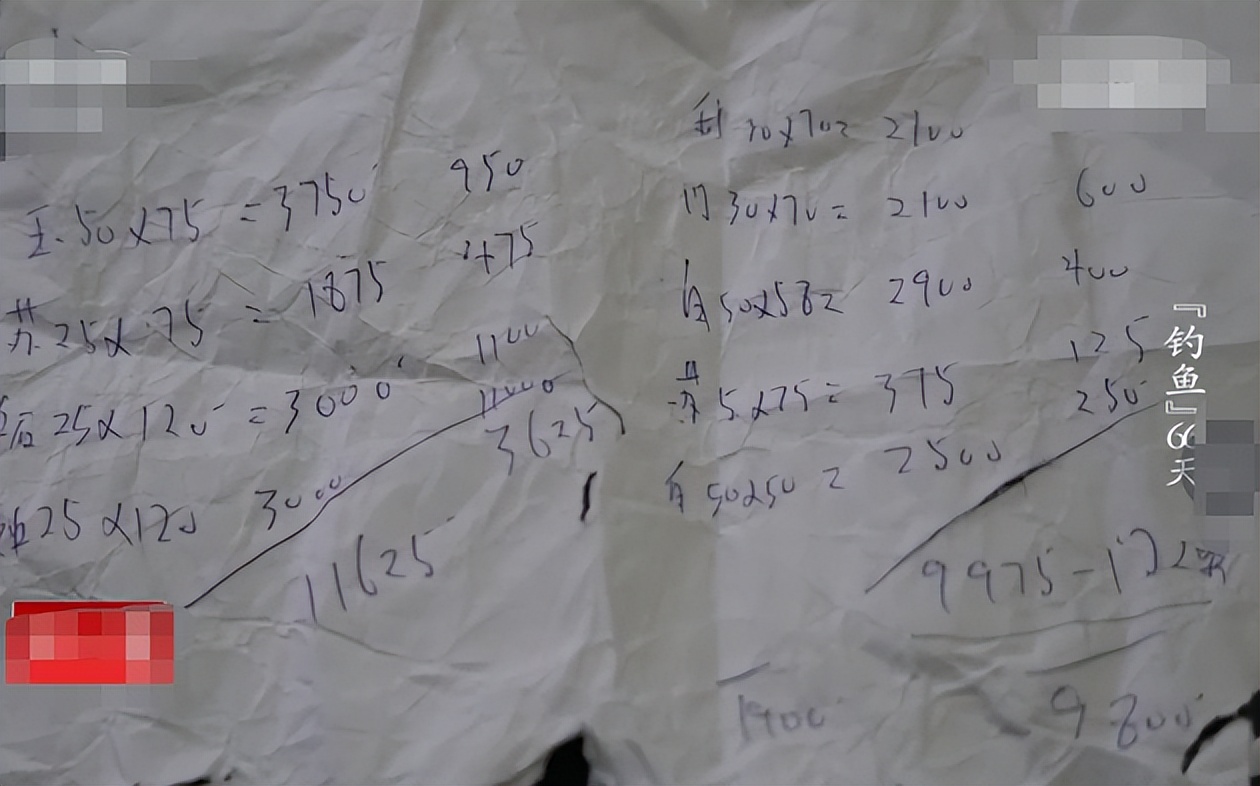 王.50×75=3750 950
苏.25×75=1875 475
后25×120=3000 1100
25×120 3000 11000
3625
11625
利30×70=2100
门30×70=2100 600
自50×58=2900 400
苏5×75=375 125
自50×50=2500 250
9975-172
1900
9800
『钓鱼』66天